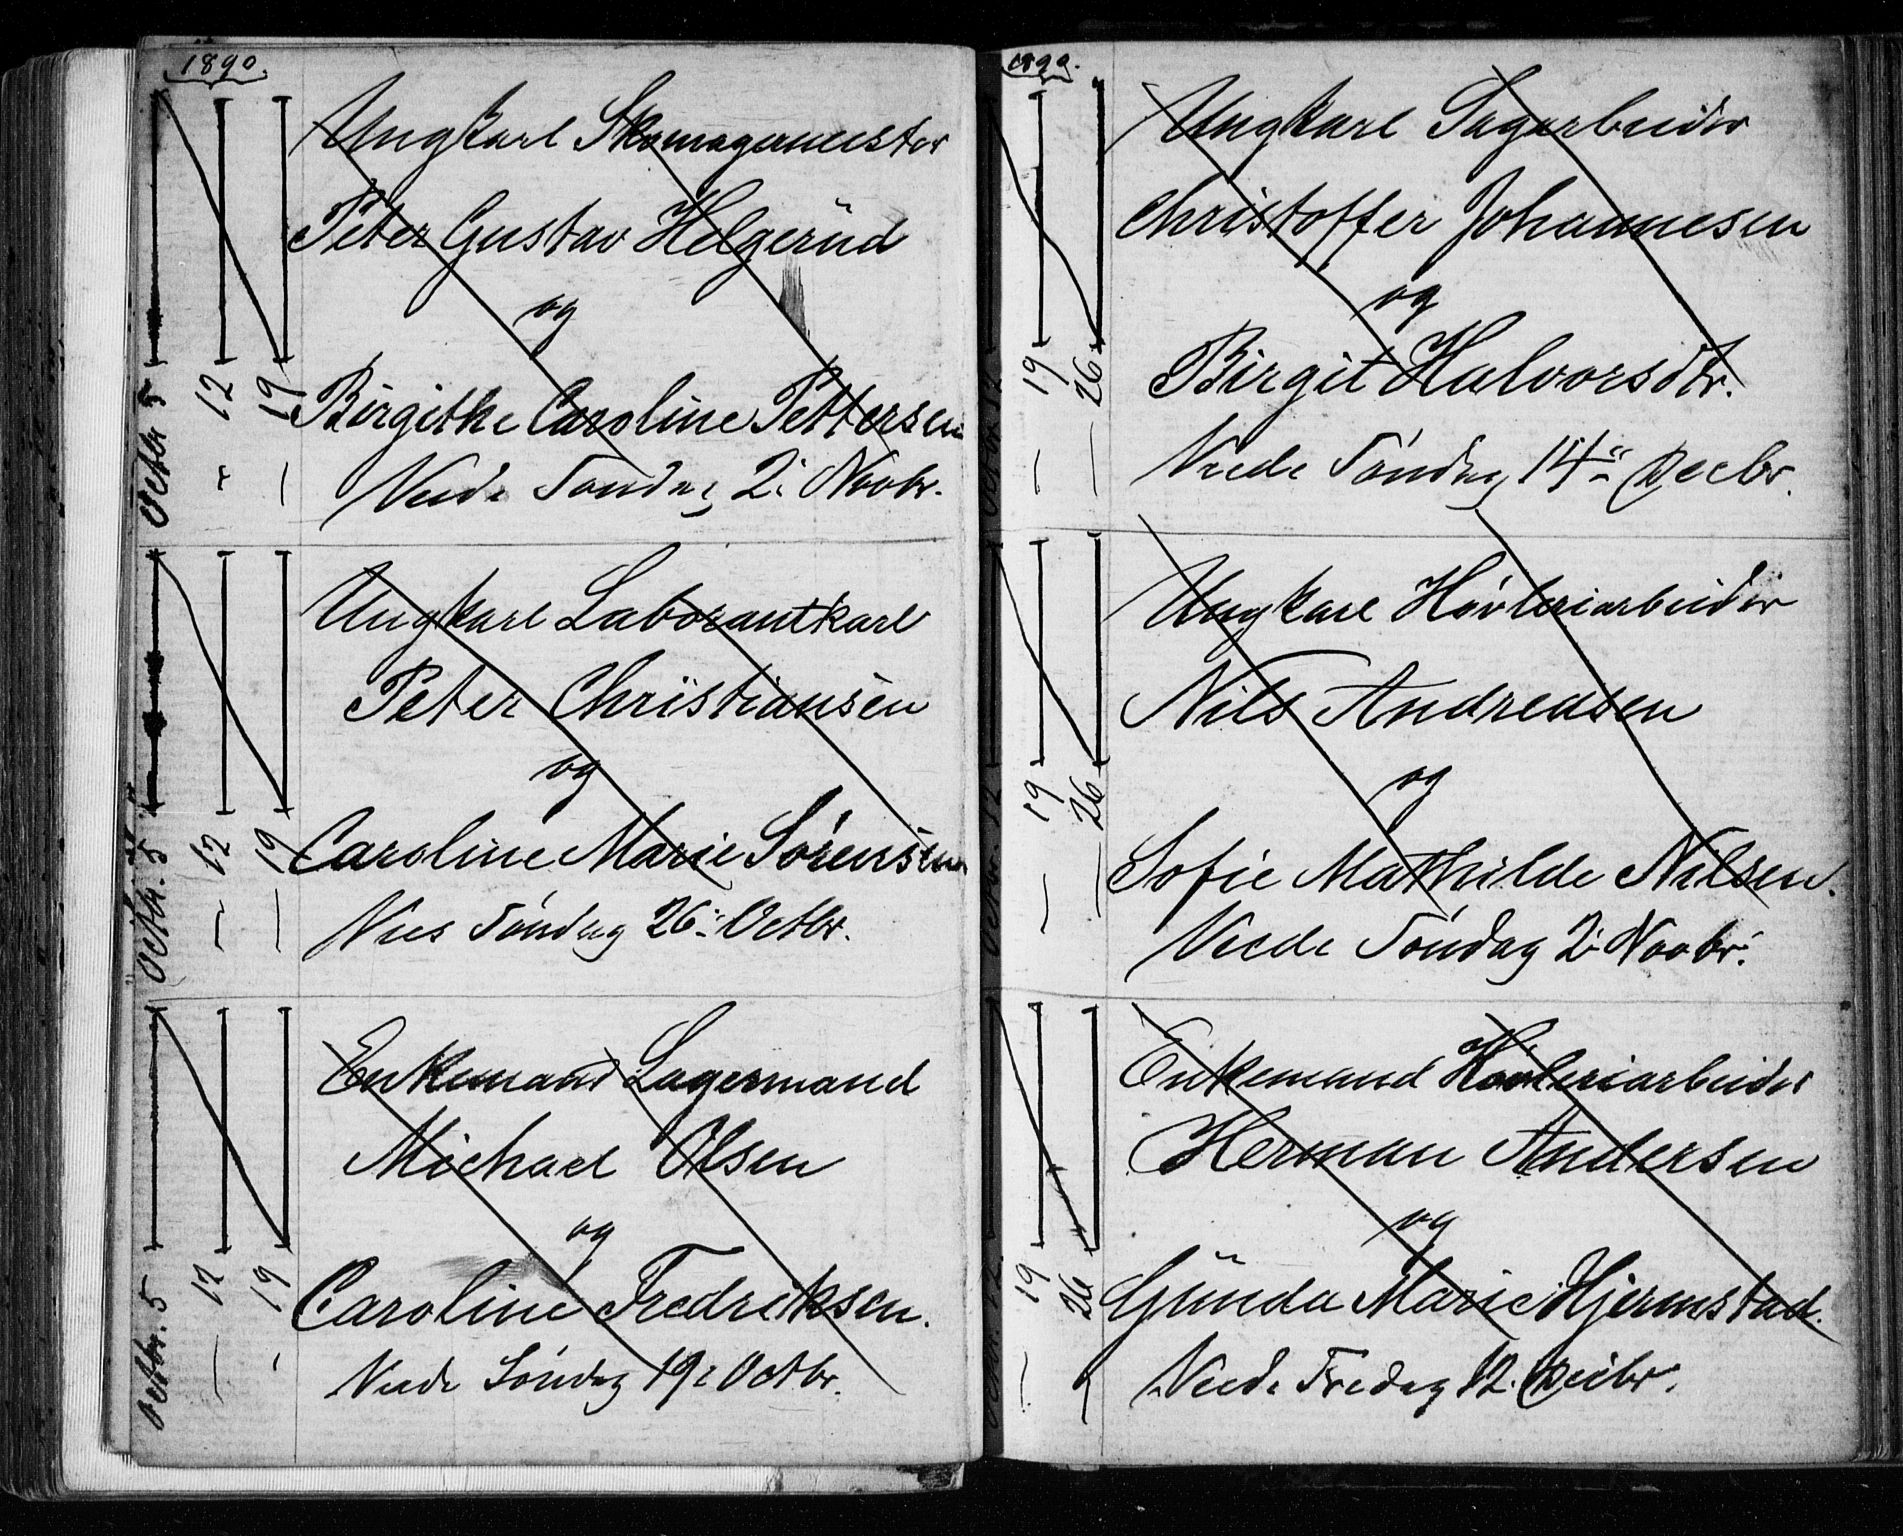 1890.
Octbr 5 12 19
Ungkarl Skomagermester
Peter Gustav Helgerüd
og
Birgithe Caroline Pettersen
Viede Søndag 2: Novbr.
Octbr. 5 12 19
Ungkarl Laborantkarl
Peter Christiansen
og
Caroline Marie Sørensen
Vies Søndag 26: Octbr.
Octbr. 5 12 19
Enkemand Lagermand
Michael Olsen
og
Caroline Fredriksen.
Viede Søndag 19: Octbr.
1890.
Octbr. 12 19 26
Ungkarl Sagarbeider
Christoffer Johannesen
og
Birgit Halvorsdtr.
Viede Søndag 14de Decbr.
Octbr. 12 19 26
Ungkarl Høvleriarbeider
Nils Andreasen
og
Sofie Mathilde Nilsen.
Viede Søndag 2: Novbr.
Octbr. 12 19 26
Enkemand Høvleriarbeider
Herman Andersen
og
Günda Marie Hjermstad.
Viede Fredag 12. Decbr.